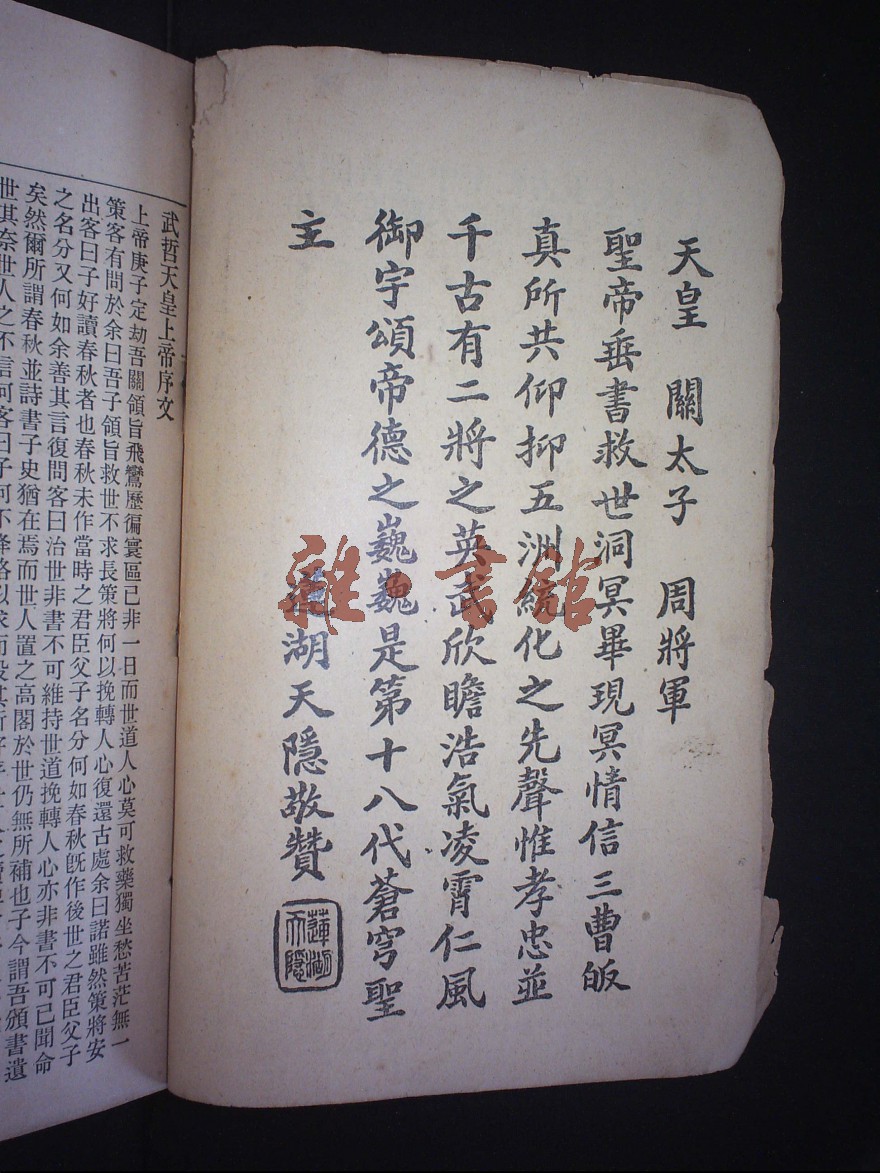 天皇　關太子　周將軍
聖帝垂書救世洞冥畢現冥情信三曹皈
真所共仰抑五洲統化之先聲惟孝忠並
千古有二將之英武欣瞻浩氣凌霄仁風
御宇頌帝德之巍巍是第十八代蒼穹聖
主
蓮湖天隱敬贊
蓮湖
天隱
雜·書館
武哲天皇上帝序文
上帝庚子定劫吾關領旨飛鸞歷徧寰區已非一日而世道人心莫可救藥獨坐愁苦茫無一
策客有問於余曰吾子領旨救世不求長策將何以挽轉人心復還古處余曰諾雖然策將安
出客曰子好讀春秋者也春秋未作當時之君臣父子名分何如春秋旣作後世之君臣父子
之名分又何如余善其言復問客曰治世非書不可維持世道挽轉人心亦非書不可已聞命
矣然爾所謂春秋並詩書子史猶在焉而世人置之高閣於世仍無所補也子今謂吾頒書遺
世其奈世人之不信何客曰子何不降格以求